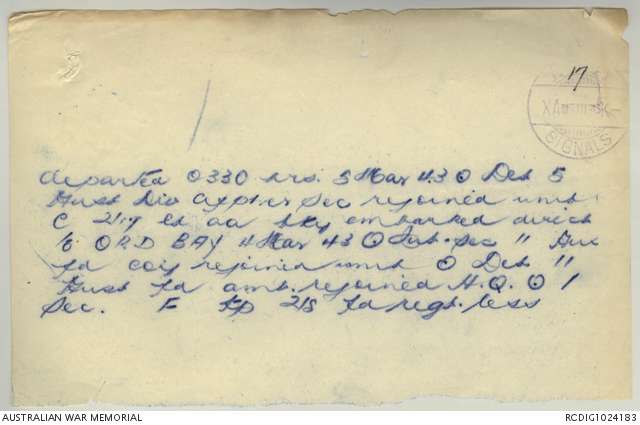 17
SIGNALS
departed 0330 hrs. 5 Mar 43 O Det 5
Aust Div Cypher Sec rejoined unit.
C 2/7 Lt aa bty embarked direct
to ORO BAY 4 Mar 43 O Sub-Sec "
fd coy rejoined unit O Det "
Aust fd amb. rejoined H.Q. O 1
Sec. F Tp 2/5 fd regt. less
AUSTRALIAN WAR MEMORIAL
RCDIG1024183